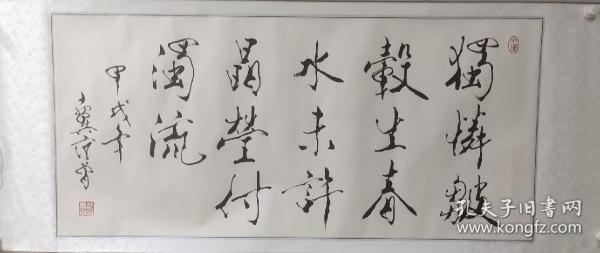 獨憐皺
縠生春
水未許
晶瑩付
濁流
甲戌年
孔夫子旧书网
www.kongfz.com